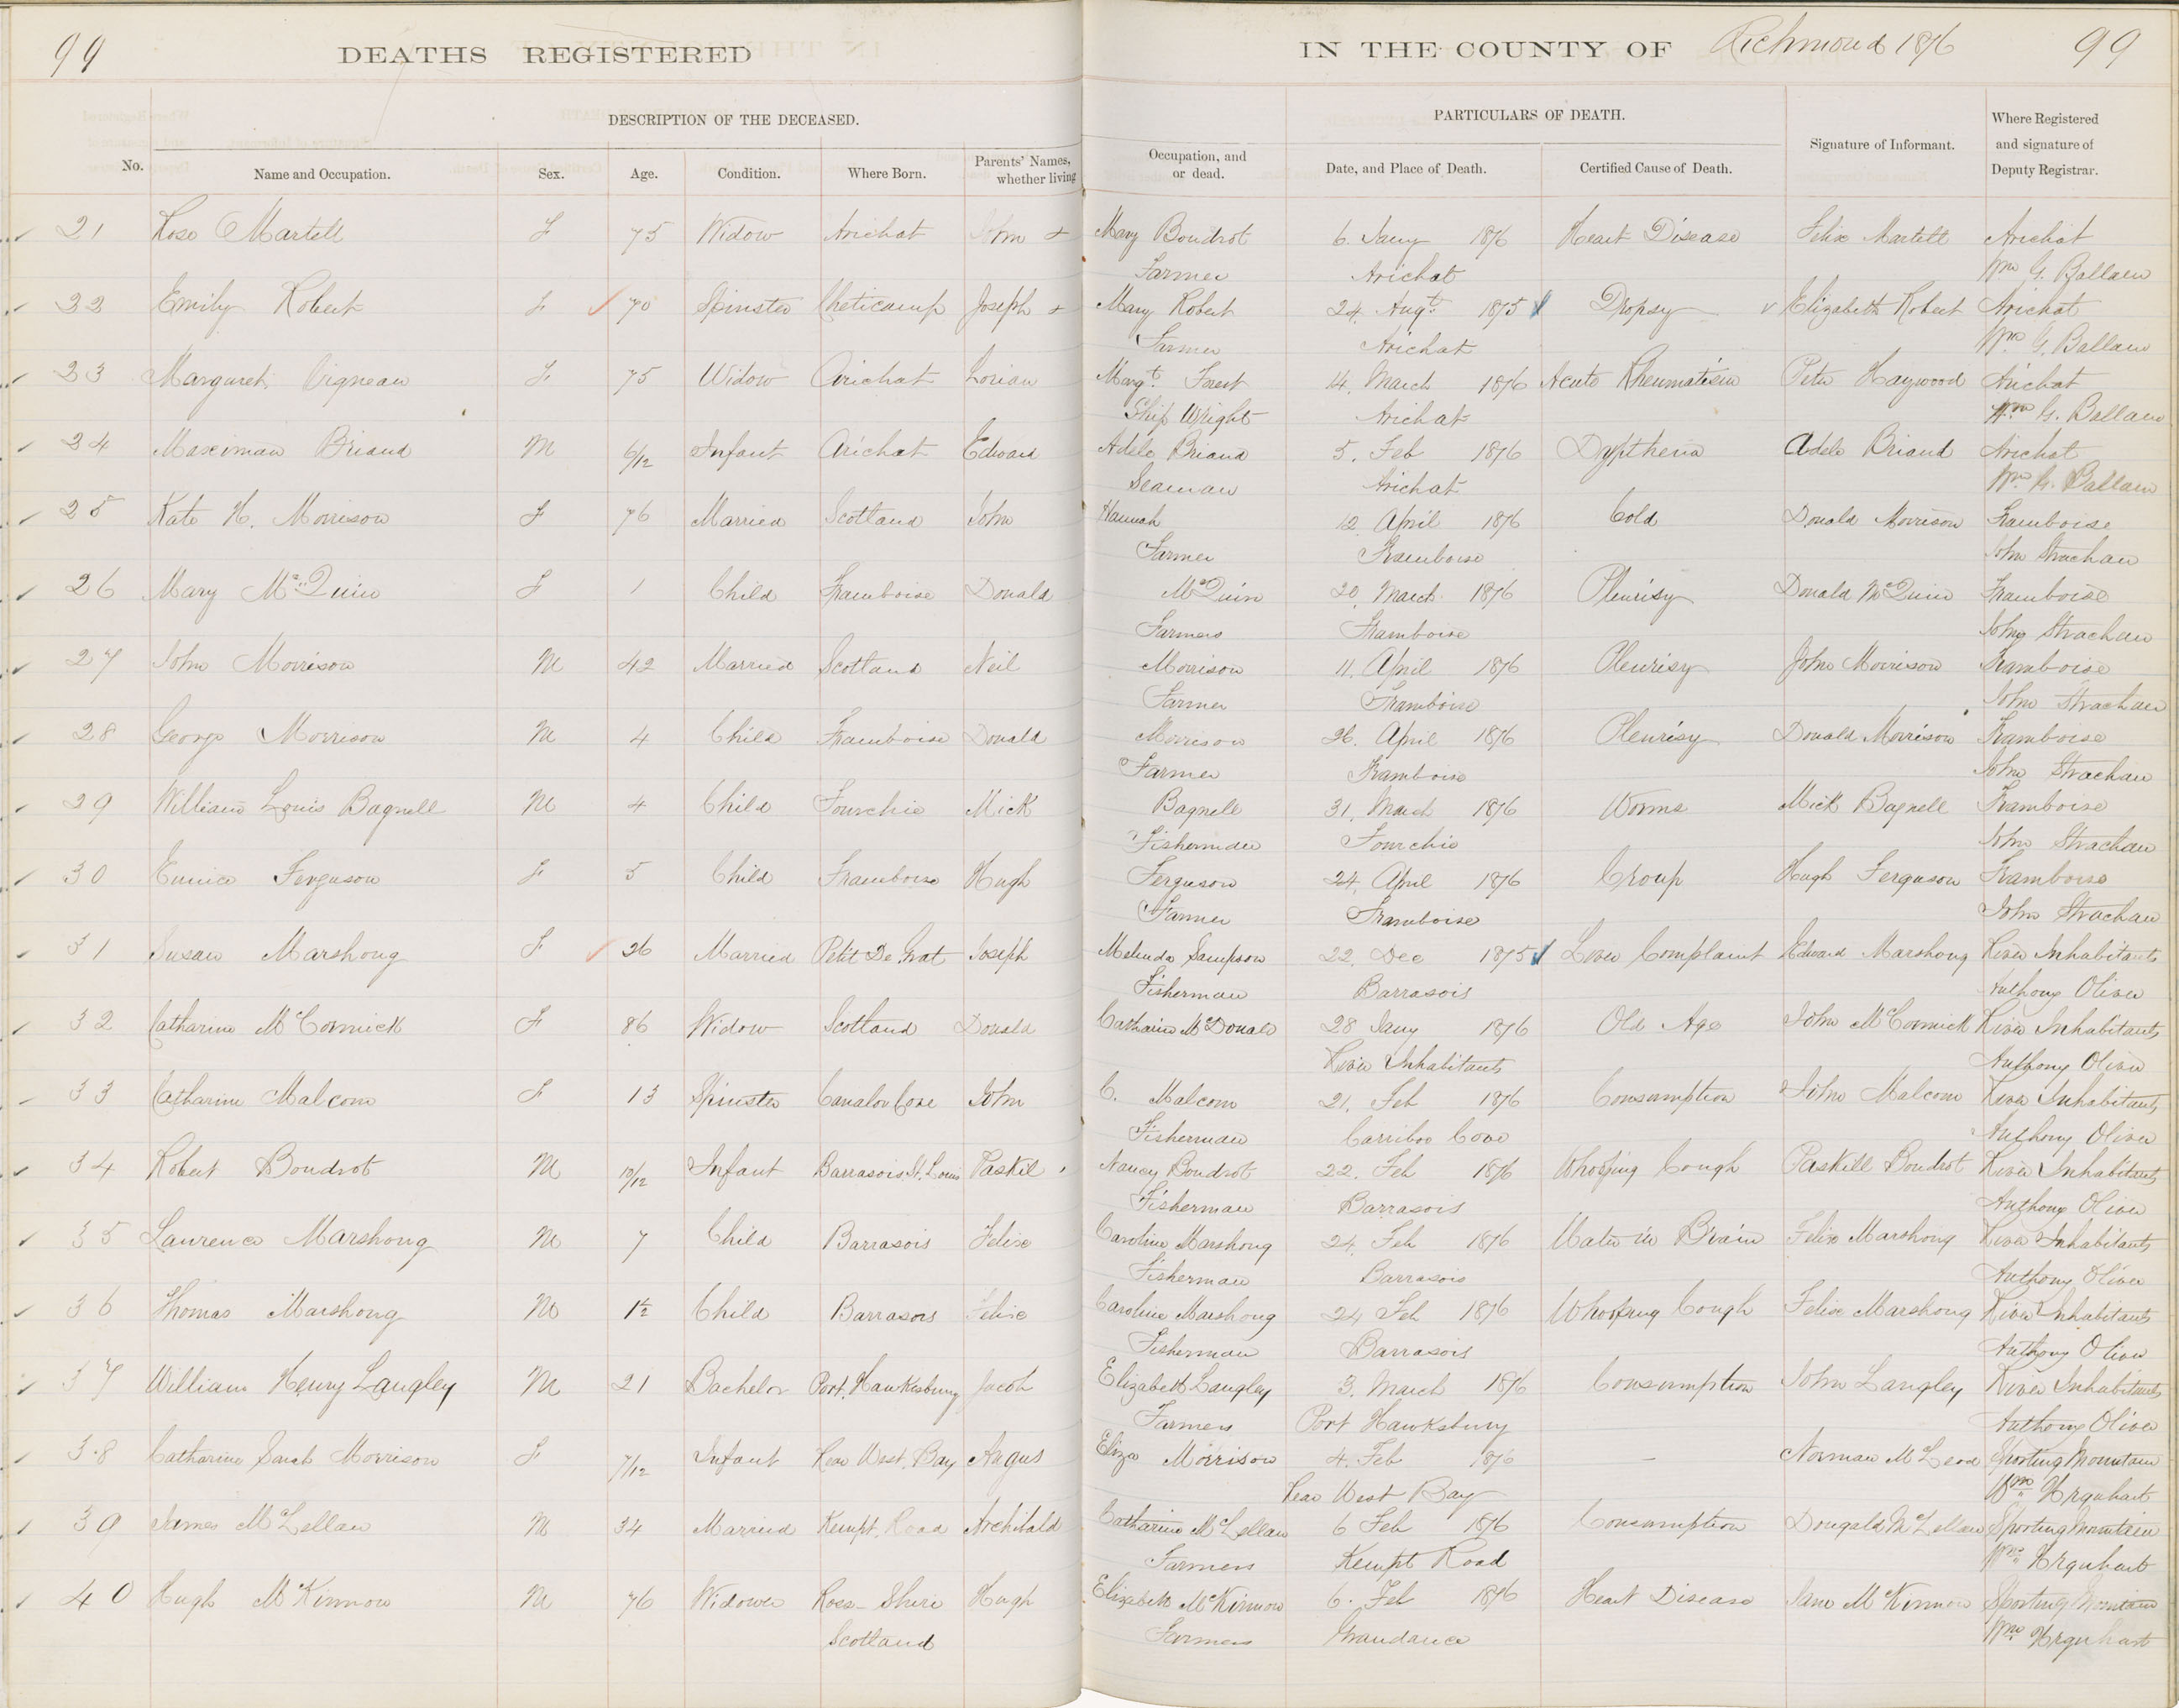 99 DEATHS REGISTERED IN THE COUNTY OF Richmond 1876 99
DESCRIPTION OF THE DECEASED. PARTICULARS OF DEATH.
No. Name and Occupation. Sex. Age. Condition. Where Born. Parents' Names, whether living Occupation, and or dead. Date, and Place of Death. Certified Cause of Death. Signature of Informant. Where Registered and signature of Deputy Registrar.
21 Rose Martell F 75 Widow Arichat John + Mary Boudrot 6. Jany 1876 Heart Disease Felix Martell Arichat
Farmer Arichat Wm G. Ballam
22 Emily Robert F 70 Spinster Cheticamp Joseph + Mary Robert 24. Augt. 1875 Dropsy Elizabeth Robert Arichat
Farmer Arichat Wm G. Ballam
23 Margaret Vigneau F 75 Widow Arichat Lorian Margt. Forest 14. March 1876 Acute Rheumatism Peter Haywood Arichat
Ship Wright Arichat Wm G. Ballam
24 Maximan Briand M 6/12 Infant Arichat Edward Adele Briand 5. Feb 1876 Dyptheria Adele Briand Arichat
Seaman Arichat Wm G. Ballam
25 Kate H. Morrison F 76 Married Scotland John Hannah 12 April 1876 Cold Donald Morrison Framboise
Farmer Framboise John Strachan
26 Mary McQuin F 1 Child Framboise Donald McQuin 20. March 1876 Pleurisy Donald McQuin Framboise
Farmers Framboise John Strachan
27 John Morrison M 42 Married Scotland Neil Morrison 11. April 1876 Pleurisy John Morrison Framboise
Farmer Framboise John Strachan
28 George Morrison M 4 Child Framboise Donald Morrison 26. April 1876 Pleurisy Donald Morrison Framboise
Farmer Framboise John Strachan
29 William Louis Bagnell M 4 Child Fourchie Mick Bagnell 31. March 1876 Worms Mick Bagnell Framboise
Fisherman Fourchie John Strachan
30 Eunice Ferguson F 5 Child Framboise Hugh Ferguson 24. April 1876 Croup Hugh Ferguson Framboise
Farmer Framboise John Strachan
31 Susan Marshong F 26 Married Petit De Grat Joseph Melinda Sampson 22. Dec 1875 Liver Complaint Edward Marshong River Inhabitants
Fisherman Barrasois Anthony Oliver
32 Catharine McCormick F 86 Widow Scotland Donald Catharine McDonald 28 Jany 1876 Old Age John McCormick River Inhabitants
River Inhabitants Anthony Oliver
33 Catharine Malcom F 13 Spinster Cove John C. Malcom 21. Feb 1876 Consumption John Malcom River Inhabitants
Fisherman Carriboo Cove Anthony Oliver
34 Robert Boudrot M 10/12 Infant Barrasois St. Louis Paskil Nancy Boudrot 22. Feb 1876 Whooping Cough Paskill Boudrot River Inhabitants
Fisherman Barrasois Anthony Oliver
35 Laurence Marshong M 7 Child Barrasois Felix Caroline Marshong 24. Feb 1876 Water in Brain Felix Marshong River Inhabitants
Fisherman Barrasois Anthony Oliver
36 Thomas Marshong M 1½ Child Barrasois Felix Caroline Marshong 24 Feb 1876 Whooping Cough Felix Marshong River Inhabitants
Fisherman Barrasois Anthony Oliver
37 William Henry Langley M 21 Bachelor Port Hawkesbury Jacob Elizabeth Langley 3. March 1876 Consumption John Langley River Inhabitants
Farmers Port Hawksbury Anthony Oliver
38 Catharine Sarah Morrison F 7/12 Infant Rear West Bay Angus Eliza Morrison 4. Feb 1876 – Norman McLeod Sporting Mountain
Rear West Bay Wm Urquhart
39 James McLellan M 34 Married Kempt Road Archibald Catharine McLellan 6 Feb 1876 Consumption Dougald McLellan Sporting Mountain
Farmers Kempt Road Wm Urquhart
40 Hugh McKinnon M 76 Widower Ross-Shire Hugh Elizabeth McKinnon 6. Feb 1876 Heart Disease McKinnon Sporting Mountain
Scotland Farmers Grandance Wm Urquhart